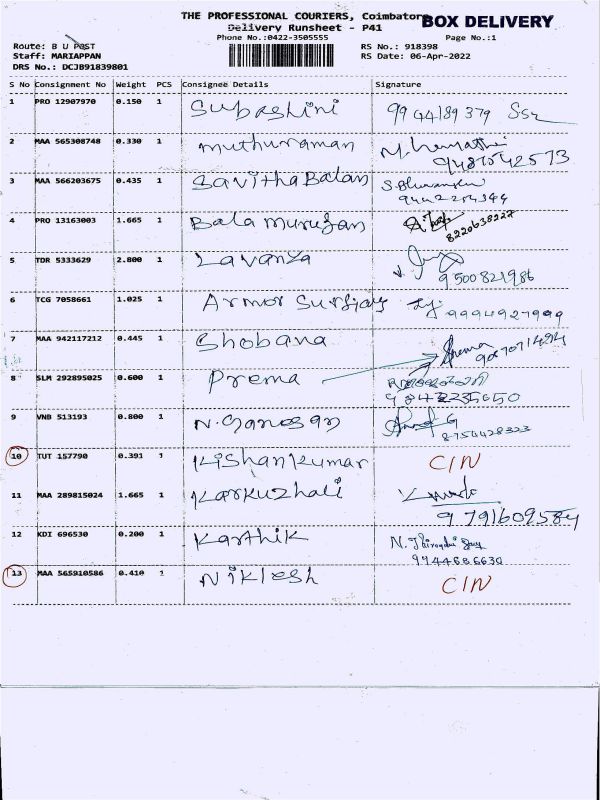 THE PROFESSIONAL COURIERS, Coimbatore BOX DELIVERY
Delivery Runsheet - P41
Phone No.:0422-3505555 Page No.:1
Route: B U POST RS No.: 918398
Staff: MARIAPPAN RS Date: 06-Apr-2022
DRS No.: DCJB91839801
S No Consignment No Weight PCS Consignee Details Signature
1 PRO 12907970 0.150 1 Subashini 9944189379
2 MAA 565308748 0.330 1 muthuraman 9487542573
3 MAA 566203675 0.435 1 Savitha Balan
4 PRO 13163003 1.665 1 Bala murugan 8220638227
5 TDR 5333629 2.800 1 Lavanya 9500821986
6 TCG 7058661 1.025 1 Armor 9994927999
7 MAA 942117212 0.445 1 Shobana Prema
8 SLM 292895025 0.600 1 Prema
9 VNB 513193 0.800 1 N. Ganesan 8754428323
10 TUT 157790 0.391 1 Kishan Kumar C/N
11 MAA 289815024 1.665 1 Karkuzhali 9791609584
12 KDI 696530 0.200 1 Karthik 9944686630
13 MAA 565910586 0.410 1 Niklesh C/N